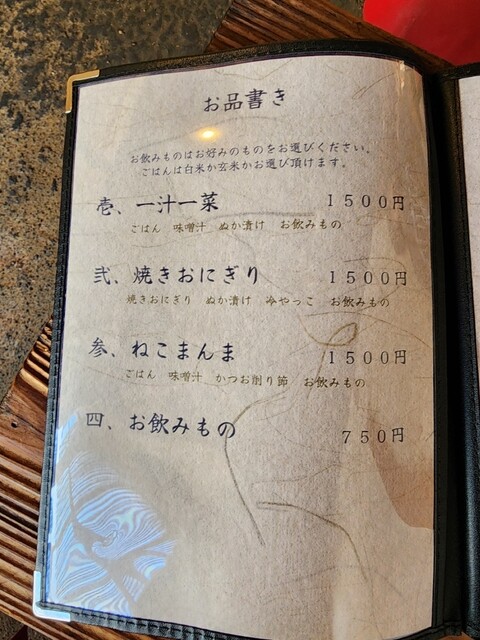 お品書き
お飲みものはお好みのものをお選びください。
ごはんは白米か玄米かお選び頂けます。
壱、一汁一菜 1500円
ごはん 味噌汁 ぬか漬け お飲みもの
弐、焼きおにぎり 1500円
焼きおにぎり ぬか漬け みやっこ お飲みもの
参、ねこまんま 1500円
ごはん 味噌汁 かつお削り節 お飲みもの
四、お飲みもの 750円